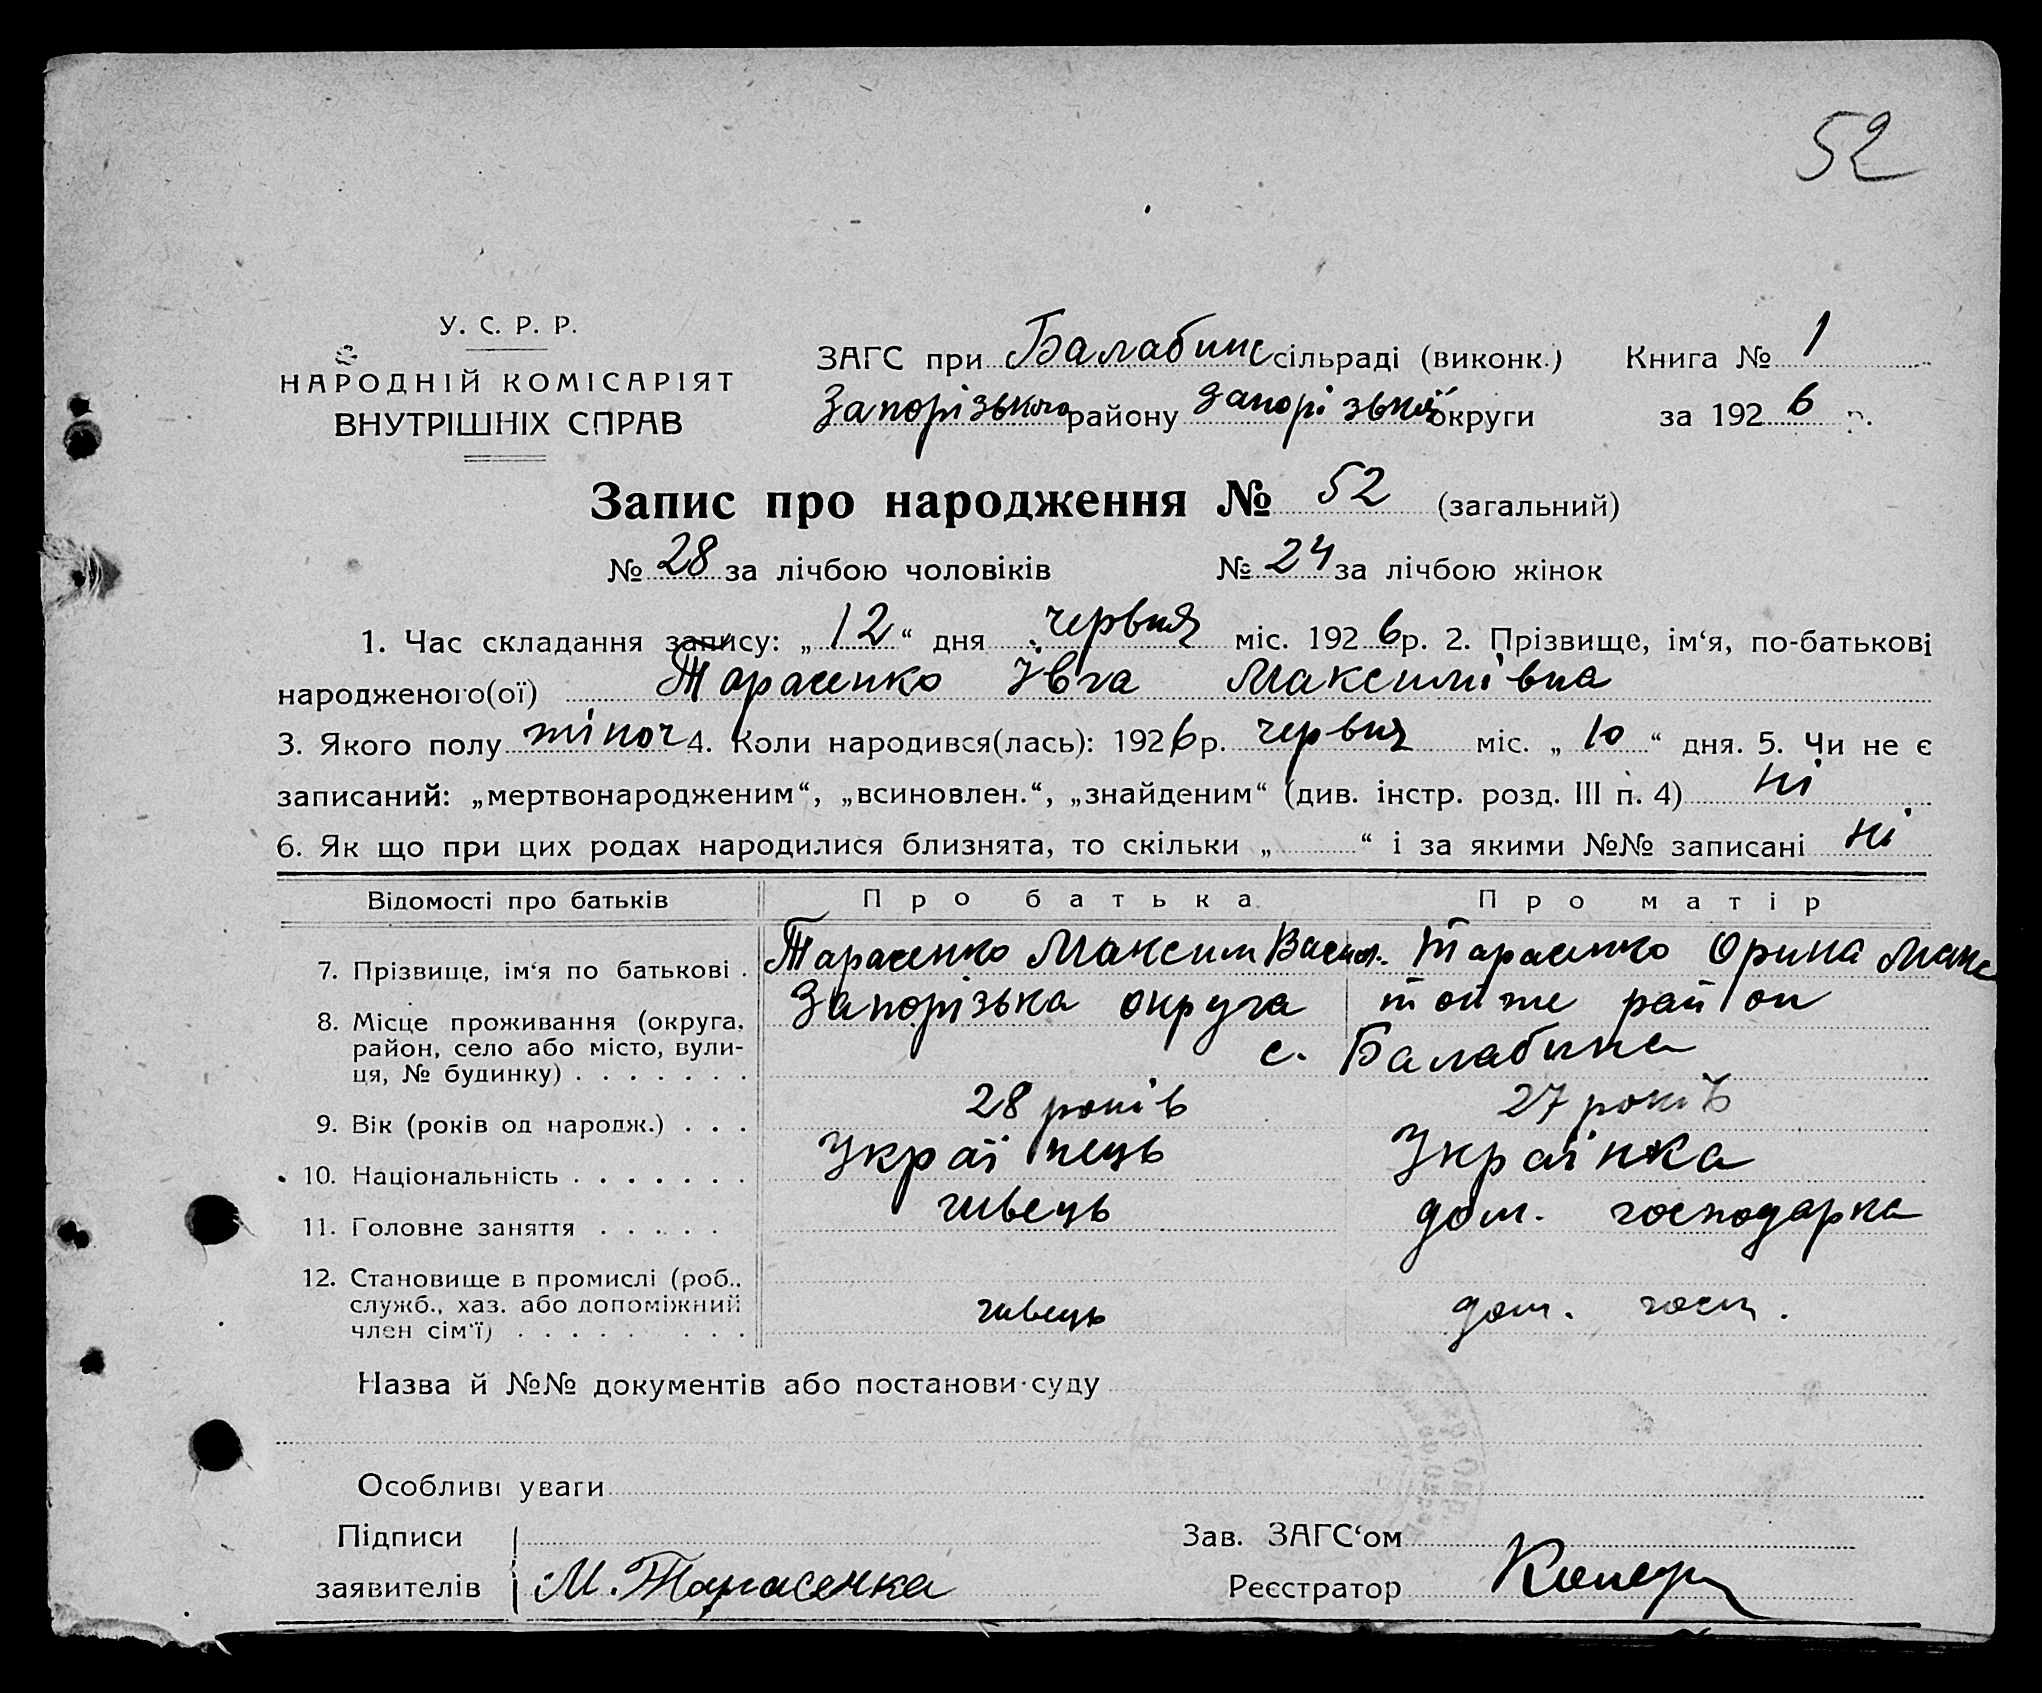 52
У. С. Р. Р.
НАРОДНІЙ КОМІСАРІЯТ
ВНУТРІШНІХ СПРАВ
ЗАГС при Балабинс сільраді (виконк.) Книга № 1
Запорізького району Запорізької округи за 1926 р.
Запис про народження № 52 (загальний)
№ 28 за лічбою чоловіків № 24 за лічбою жінок
1. Час складання запису: „12“ дня червня міс. 1926 р. 2. Прізвище, ім‘я, по-батькові
народженого(ої) Тарасенко Ївга Максимівна
3. Якого полу жіноч 4. Коли народився(лась): 1926 р. червня міс. „10“ дня. 5. Чи не є
записаний: „мертвонародженим“, „всиновлен.“, „знайденим“ (див. інстр. розд. III п. 4) ні
6. Як що при цих родах народилися близнята, то скільки „ “ і за якими №№ записані ні
Відомості про батьків Про батька Про матір
7. Прізвище, ім‘я по батькові . Тарасенко Максим Васил. Тарасенко Орина Макс
8. Місце проживання (округа, Запорізька округа тойже район
район, село або місто, вули- с. Балабина
ця, № будинку) . . . . . . .
9. Вік (років од народж.) . . . 28 років 27 років
10. Національність . . . . . . . Українець Українка
11. Головне заняття . . . . . швець дом. господарка
12. Становище в промислі (роб.,
служб., хаз. або допоміжний швець дом. госп.
член сім‘ї) . . . . . . . . .
Назва й №№ документів або постанови суду
Особливі уваги
Підписи Зав. ЗАГС‘ом
заявителів М. Тарасенка Реєстратор